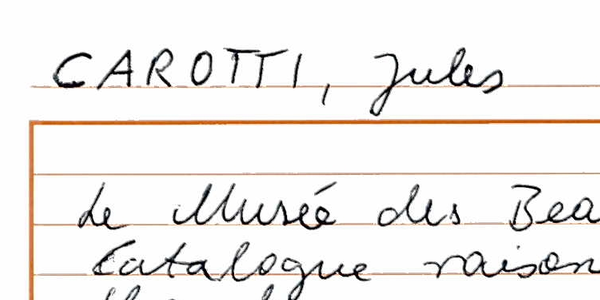 CAROTTI, Jules
Le Musée des Bea
Catalogue raison